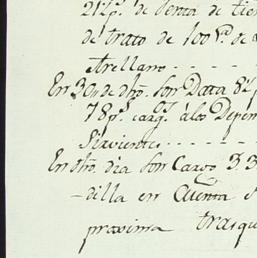 212p.s de Venta de tie
de trato de 100 v.s de
Arellano - - - -
En 30 de dho. Son Data 82p
78p.s carg.os á los Depen
Sirvientes - - - - -
En dho. dia Son Cargo 33
-dilla en Cuenta
proxima trasqu